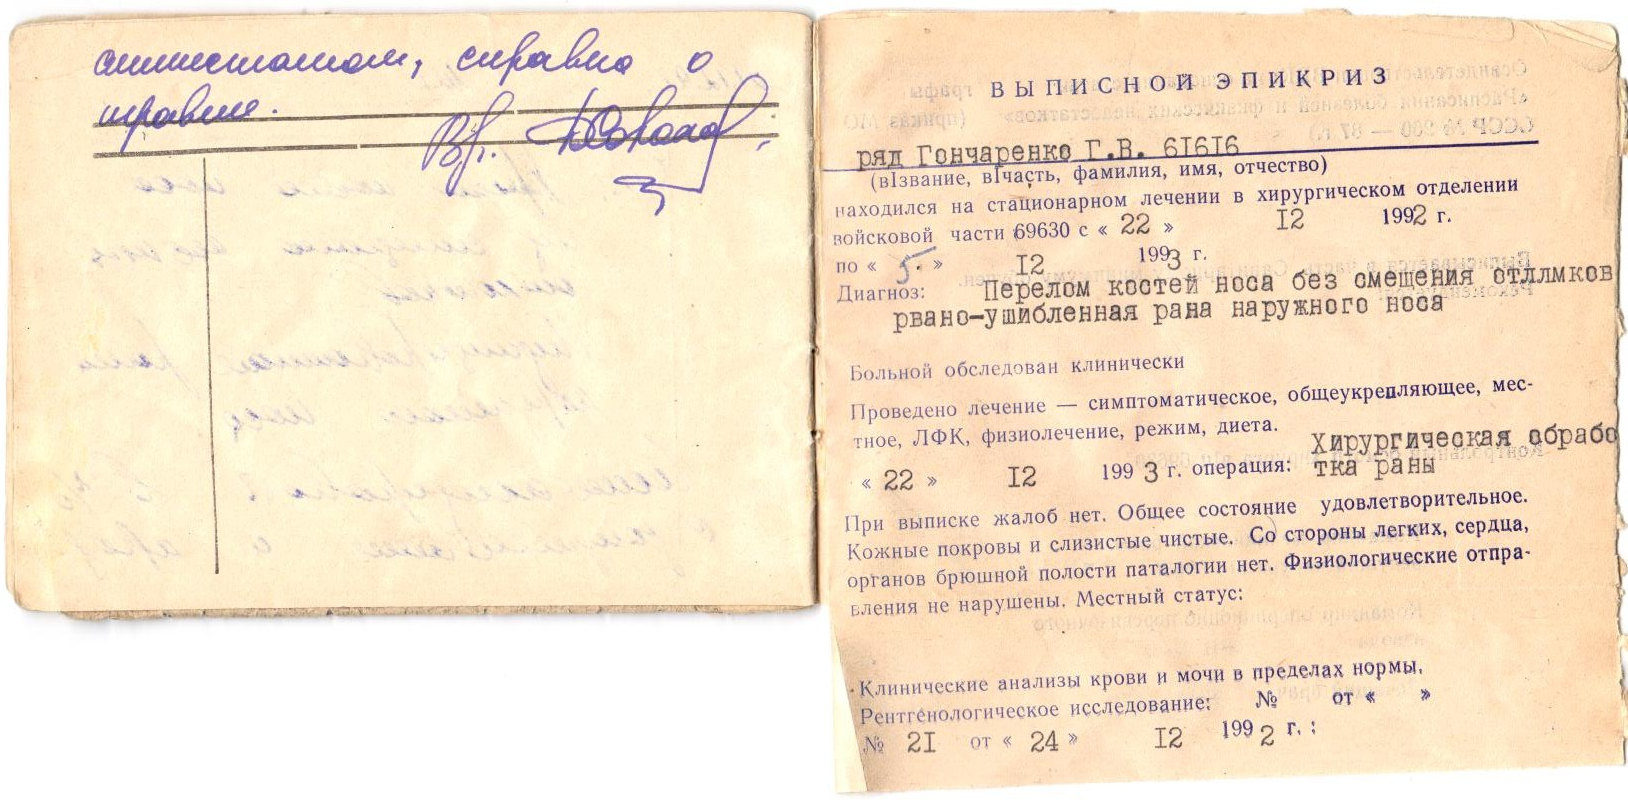 справка о
травме.
Вр.
ВЫПИСНОЙ ЭПИКРИЗ
ряд Гончаренко Г.В. 6I6I6
(в|звание, в|часть, фамилия, имя, отчество)
находился на стационарном лечении в хирургическом отделении
войсковой части 69630 с « 22 » I2 1992 г.
по « 5. » I2 1993 г.
Диагноз: Перелом костей носа без смещения отллмков
рвано-ушибленная рана наружного носа
Больной обследован клинически
Проведено лечение — симптоматическое, общеукрепляющее, мес-
тное, ЛФК, физиолечение, режим, диета.
« 22 » I2 1993 г. операция: Хирургическая обрабо
тка раны
При выписке жалоб нет. Общее состояние удовлетворительное.
Кожные покровы и слизистые чистые. Со стороны легких, сердца,
органов брюшной полости паталогии нет. Физиологические отпра-
вления не нарушены. Местный статус:
Клинические анализы крови и мочи в пределах нормы,
Рентгенологическое исследование: № от « »
№ 2I от « 24 » I2 1992 г. :